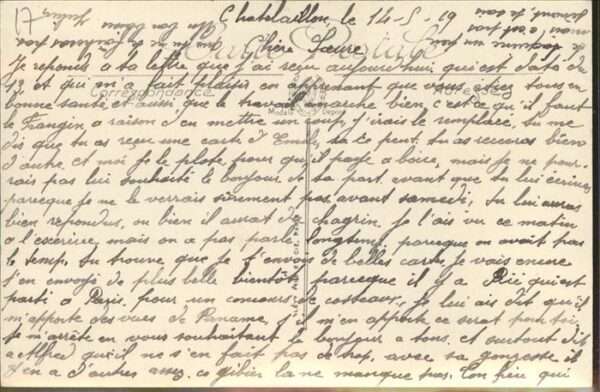 17
Chatelaillon, le 14-5-19
Chère Sœure
Carte Postale
Correspondance
Je reponds a ta lettre que j'ai reçu aujourd'hui, qui est daté du
12 et qui m'a fait plaisir en apprenant que vous étiez tous en
bonne santé, et aussi que le travail marche bien c'est ce qu'il faut
le frangin a raison d'en mettre un coup, j'irais le remplacé, tu me
dis que tu as reçu une carte d'Emile, sa ce peut, tu en recevras bien
d'autre. et moi je le plote pour qu'il paye a boire, mais je ne pour-
rais pas lui souhaité le bonjour de ta part avant que tu lui écrives
parceque je ne le verrais sûrement pas avant samedi, tu lui auras
bien repondus, ou bien il aurait du chagrin, je l'ais vu ce matin
a l'exercice, mais on a pas parlé longtemps, parceque on avait pas
le temps. tu trouve que je t'envois de belles carte, je vais encore
t'en envoyé de plus belle bientôt, parceque il y a qui est
parti a Paris. pour un concours de costeaux, je lui ais dit qu'il
m'apporte des vues de Paname, s'il m'en apporte ce serat pour toi,
Je m'arrête en vous souhaitant le bonjour a tous. et surtout dit
a Alfred qu'il ne s'en fait pas de trop, avec sa gonzesse il
y en a d'autres assez. ce gibier la ne manque pas. Ton frère qui